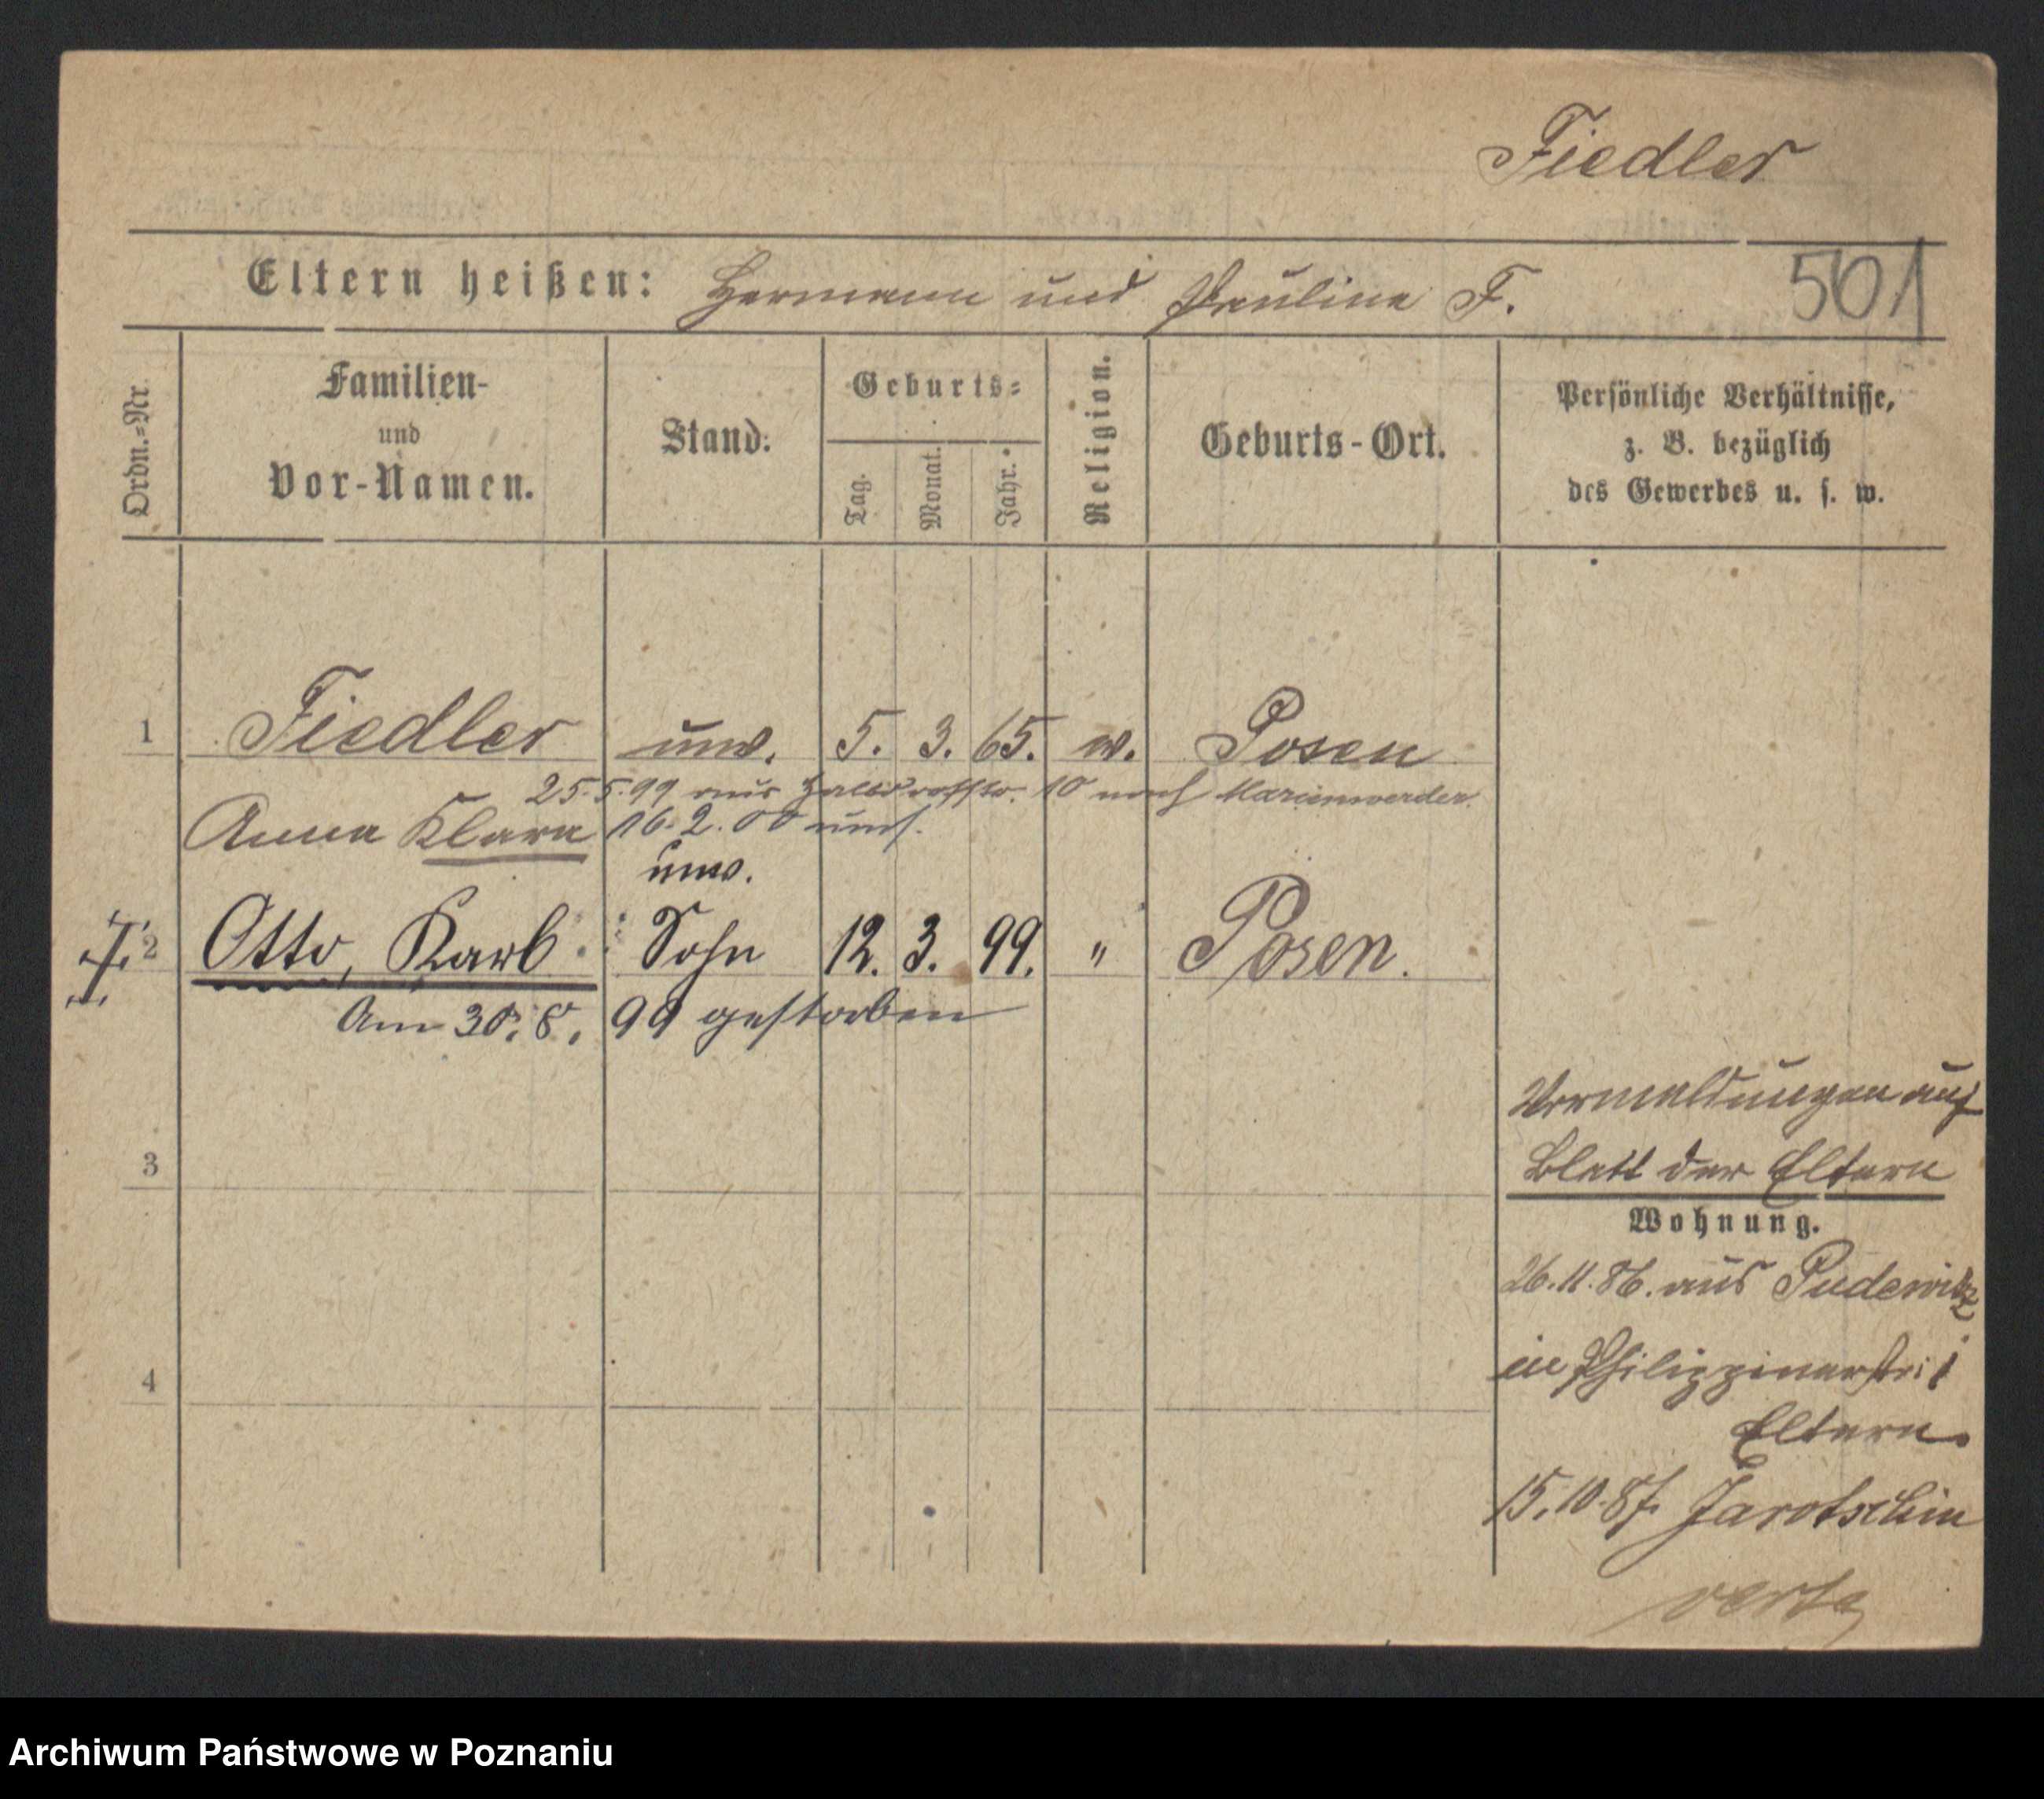 Fiedler
Eltern heißen: Hermann und Pauline F.
501
Ordn.=Nr.
Familien-
und
Vor-Namen.
Stand.
Geburts=
Tag.
Monat.
Jahr.
Religion.
Geburts-Ort.
Persönliche Verhältnisse,
z. B. bezüglich
des Gewerbes u. s. w.
1 Fiedler unv. 5. 3. 65. ev. Posen
25.5.99 aus 10 nach Marienwerder.
Anna Klara 16.2.00
unv.
2 Otto, Karl Sohn 12. 3. 99. " Posen.
Am 30. 8. 99 gestorben
3
Vermeldungen auf
Blatt der Eltern
Wohnung.
26.11.86. aus Pudewitz
in Philippinerstr. 1
4
Eltern.
15.10.87. Jarotschin
verte
Archiwum Państwowe w Poznaniu